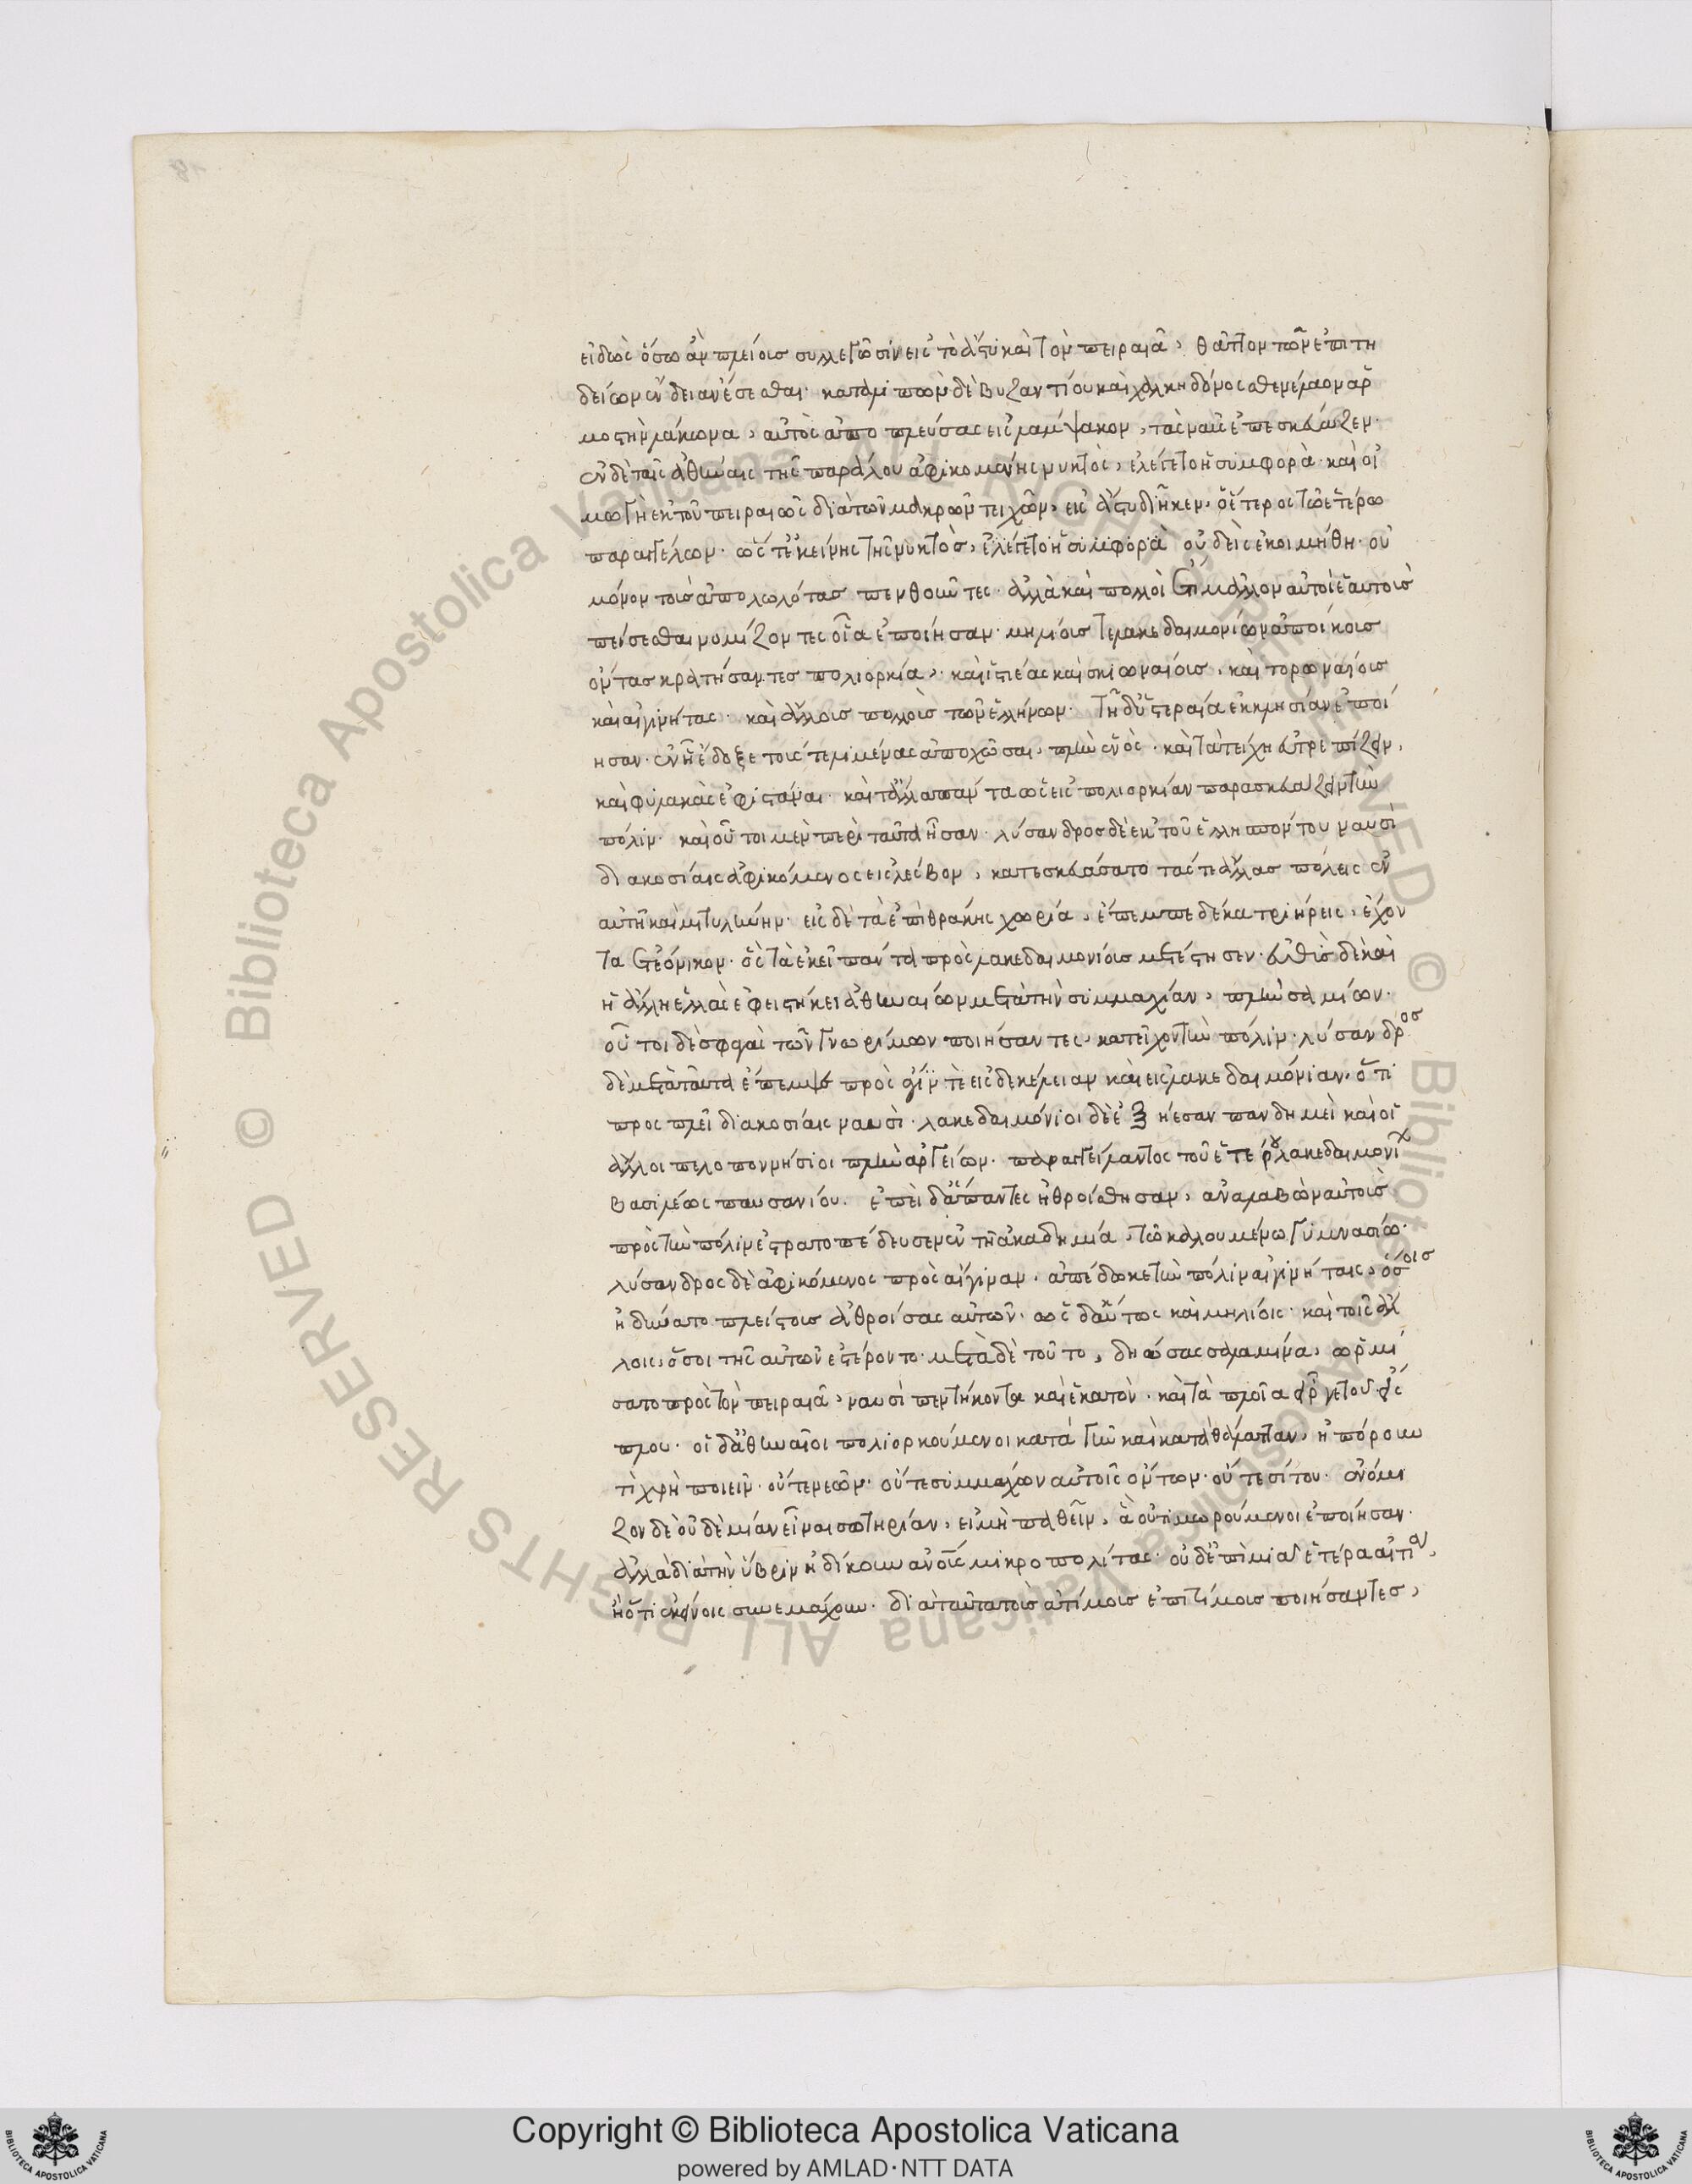 εἰδὼς ὅσω ἂν πλείους συλλεγῶσιν εἰς τὸ ἄστυ καὶ τὸν πειραιᾶ, θᾶττον τῶν ἐπιτη
δείων ἔνδειαν ἔσεσθαι. καταλιπὼν δὲ βυζαντίου καὶ χαλκηδόνος σθενέλαον ἁρ
μοστὴν λάκωνα, αὐτὸς ἀποπλεύσας εἰς λάμψακον, τὰς ναῦς ἐπεσκεύαζεν.
ἐν δὲ ταῖς ἀθήναις τῆς παράλου ἀφικομένης νυκτὸς, ἐλέγετο ἡ συμφορὰ. καὶ οἰ
μωγὴ ἐκ τοῦ πειραιῶς διὰ τῶν μακρῶν τειχῶν, εἰς ἄστυ διῆκεν, ὁ ἕτερος τῷ ἑτέρω
παραγγέλων. ὥς τ' ἐκείνης τῆς νυκτὸς, ἐλέγετο ἡ συμφορὰ οὐδεὶς ἐκοιμήθη. οὐ
μόνον τοὺς ἀπολωλότας πενθοῦντες. ἀλλὰ καὶ πολλοὶ ἔτι μᾶλλον αὐτοὶ ἑαυτοὺς
πείσεσθαι νομίζοντες οἷα ἐποίησαν. μηλίους τε λακεδαιμονίων ἀποίκους
ὄντας κρατήσαντες πολιορκία, καὶ ἱστιέας καὶ σκιωναίους, καὶ τορωναίους
καὶ αἰγινήτας. καὶ ἄλλους πολλοὺς τῶν ἑλλήνων. τῇ δ' ὑστεραία ἐκκλησίαν ἐποί
ησαν. ἐν ᾗ ἔδοξε τούς τε λιμένας ἀποχῶσαι, πλὴν ἑνὸς. καὶ τὰ τείχη εὐτρεπίζειν,
καὶ φυλακὰς ἐφιστάναι. καὶ τἄλλα πάντα ὡς εἰς πολιορκίαν παρασκευάζειν τὴν
πόλιν. καὶ οὗτοι μὲν περὶ ταῦτα ἦσαν. λύσανδρος δὲ ἐκ τοῦ ἑλλησπόντου ναυσὶ
διακοσίαις ἀφικόμενος εἰς λέσβον, κατεσκευάσατο τάς τε ἄλλας πόλεις ἐν
αὐτῇ καὶ μιτυλήνην. εἰς δὲ τὰ ἐπὶ θράκης χωρία, ἔπεμπε δέκα τριήρεις, ἔχον
τα ἐτεόνικον. ὃς τὰ ἐκεῖ πάντα πρὸς λακεδαιμονίους μετέστησεν. εὐθὺς δὲ καὶ
ἡ ἄλλη ἑλλὰς ἐφειστήκει ἀθηναίων μετὰ τὴν συμμαχίαν, πλὴν σαμίων.
οὗτοι δὲ σφαγὰς τῶν γνωρίμων ποιήσαντες, κατεῖχον τὴν πόλιν. λύσανδρος
δὲ μετὰ ταῦτα ἔπεμψε πρὸς ἆγίν τε εἰς δεκέλειαν καὶ εἰς λακεδαιμόνιαν, ὅτι
προσπλεῖ διακοσίαις ναυσὶ. λακεδαιμόνιοι δὲ ἐξῄεσαν πανδημεὶ καὶ οἱ
ἄλλοι πελοποννήσιοι πλὴν ἀργείων. παραγγείλαντος τοῦ ἑτέρου λακεδαιμονίων
βασιλέως παυσανίου. ἐπεὶ δ' ἅπαντες ἠθροίσθησαν, ἀναλαβὼν αὐτοὺς
πρὸς τὴν πόλιν ἐστρατοπέδευσεν ἐν τῇ ἀκαδημία, τῷ καλουμένω γυμνασίω.
λύσανδρος δὲ ἀφικόμενος πρὸς αἴγιναν, ἀπέδωκε τὴν πόλιν αἰγινήταις, ὅσους
ἠδύνατο πλείστους ἀθροίσας αὐτῶν. ὡς δ' αὕτως καὶ μηλίοις. καὶ τοῖς ἄλ
λοις, ὅσοι τῆς αὐτῶν ἐστέροντο. μετὰ δὲ τοῦτο, δηώσας σαλαμῖνα, ὡρμί
σατο πρὸς τὸν πειραιᾶ, ναυσὶ πεντήκοντα καὶ ἑκατὸν. καὶ τὰ πλοῖα εἶργε τοῦ εἴσ
πλου. οἱ δ' ἀθηναῖοι πολιορκούμενοι κατὰ γῆν καὶ κατὰ θάλατταν, ἠπόρουν
τί χρὴ ποιεῖν. οὔτε νεῶν. οὔτε συμμάχων αὐτοῖς ὄντων. οὔτε σίτου. ἐνόμι
ζον δὲ οὐδεμίαν εἶναι σωτηρίαν, εἰ μὴ παθεῖν, ἃ οὐ τιμωρούμενοι ἐποίησαν.
ἀλλὰ διὰ τὴν ὕβριν ἠδίκουν ἀνους μικροπολίτας. οὐδ' ἐπὶ μιᾷ ἑτέρα αἰτίᾳ,
ἢ ὅτι ἐκείνοις συνεμάχουν. διὰ ταῦτα τοὺς ἀτίμους ἐπιτίμους ποιήσαντες,
Copyright © Biblioteca Apostolica Vaticana
powered by AMLAD·NTT DATA